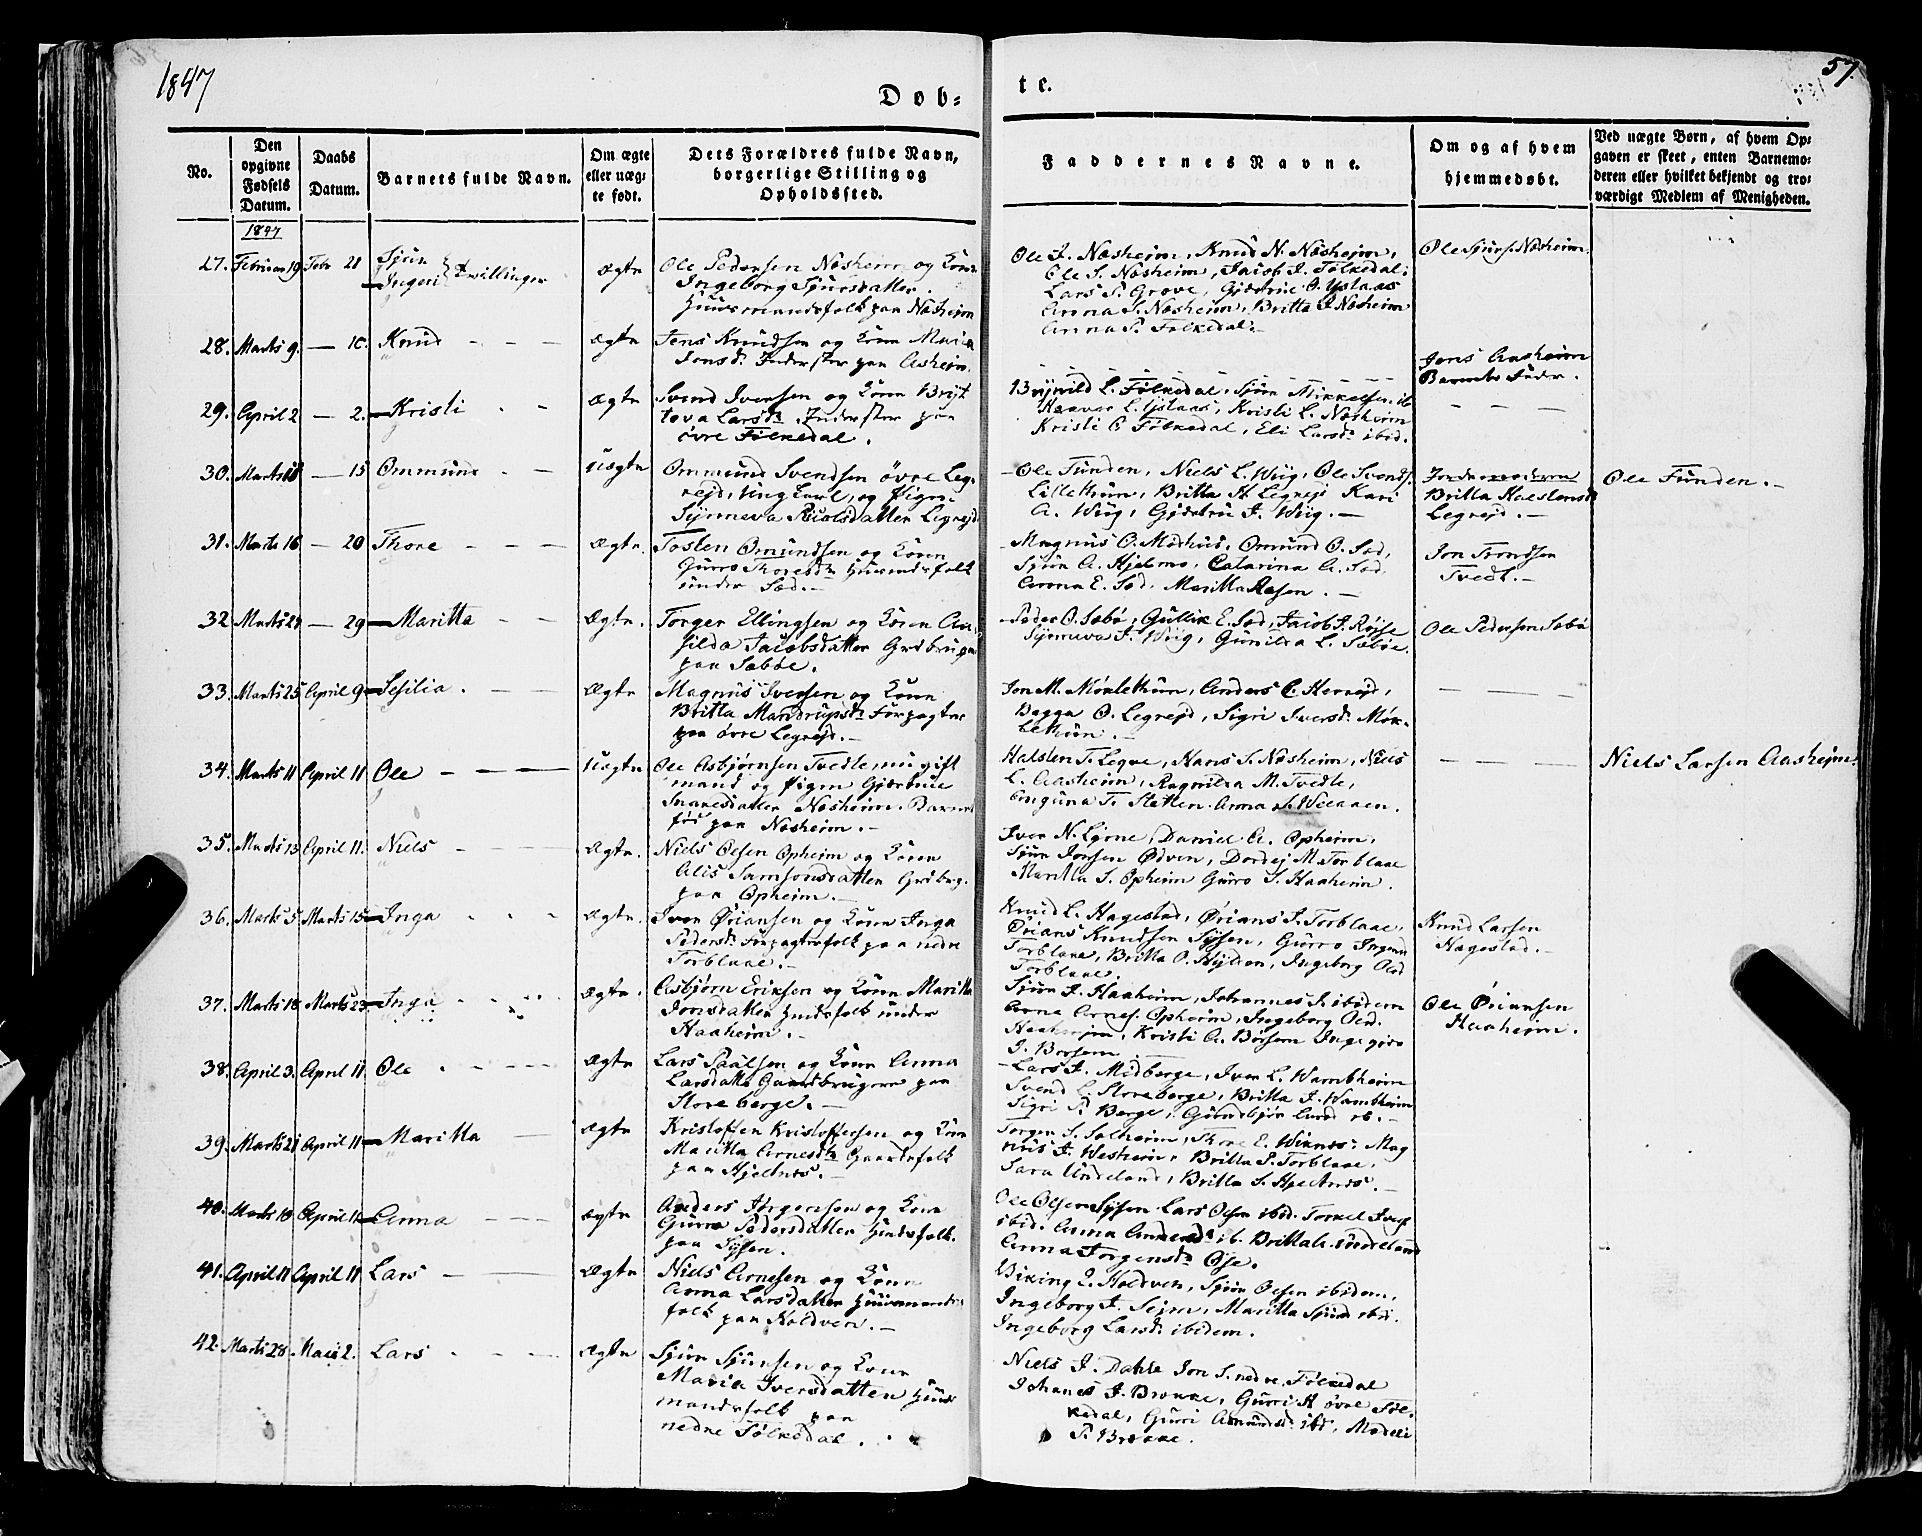 1847
57.
Døb=
te.
No.
Den opgivne Fødsels Datum.
Daabs Datum.
Barnets fulde Navn.
Om ægte eller uæg= te født.
Dets Forældres fulde Navn, borgerlige Stilling og Opholdssted.
Faddernes Navne.
Om og af hvem hjemmedøbt.
Ved uægte Børn, af hvem Op= gaven er skeet, enten Barnemo= deren eller hvilket bekjendt og tro= værdigt Medlem af Menigheden.
1847
27. Februar 19 Febr 21 Sjur
Ingeri Tvillinger
Ægte
Ole Pedersen Næsheim og Kone
Ingeborg Sjursdatter.
Huusmandsfolk paa Næsheim
Ole J. Næsheim, Knud N. Næsheim,
Ole S. Næsheim, Jacob J. Folkedal,
Lars P. Grove, Gjertrue O. Ystaas
Anna S. Næsheim, Britta J. Næsheim
Anna P. Folkedal.
Ole Sjurs. Næsheim.
28. Marts 9. — 10. Knud
Ægte
Jens Knudsen og Kone Maria
Jonsd. Inderster paa Asheim.
Jens Aasheim
Barnets Fader.
29. April 2 — 2. Kristi
Ægte
Svend Iversen og Kone Bryt
teva Larsdr Inderster paa
øvre Folkedal.
Brynild L. Folkedal, Sjur Mikkelsen ib
Haavar L. Ystaas, Kristi L. Næsheim
Kristi O Folkedal, Eli Larsdr ibid.
30. Marts 11 — 15 Ommund
Uægte
Ommund Svendsen øvre Leg-
reid, Ungkarl, og Pigen
Synneva Nielsdatter Legreid
Ole Tunden, Niels L. Wiig, Ole Svends.
Lillethun, Britta H Legreid Kari
A. Wiig, Gjertru J. Wiig.
Jordemoderen
Britta Halstensd
Legreid.
Ole Tunden.
31. Marts 16 — 20 Thore
Ægte
Tosten Omundsen og Kone
Gurro Thoresdr Huusmdsfolk
under Sæd.
Magnus O. Medhus, Omund O. Sæd,
Sjur A. Hjelmo, Catarina A. Sæd,
Anna E. Sæd, Maritta Aasen.
Jon Trondsen
Tvedt.
32 Marts 24 — 29 Maritta
Ægte.
Torger Ellingsen og Kone An-
filda Jacobsdatter Grdbruger
paa Sæbøe.
Peder O. Sæbø, Gullik E. Sæd, Jacob J. Røise
Synneva J. Wiig, Gunilda L. Sæbøe.
Ole Pedersen Sæbø
33. Marts 25 April 9 Sesilia.
Ægte
Magnus Iversen og Kone
Britta Mandrupsdr Forpagter
paa øvre Legreid.
Jon M. Mørkethun, Anders C. Herreid,
Bagga O. Legreid, Sigri Iversdr Mør-
kethun.
34. Marts 11 April 11 Ole
Uægte
Ole Asbjørnsen Tvedte, nu gift
mand og Pigen Gjertrue
Snaresdatter Næsheim. Barnet
født paa Næsheim.
Halsten T. Legre, Hans S. Næsheim, Niels
L. Aasheim, Ragnilda M. Tvedte,
Anguna T. Sletten. Anna S. Wiaaen.
Niels Larsen Aasheim.
35. Marts 13 April 11. Niels
Ægte.
Niels Olsen Opheim og Kone
Alis Samsonsdatter Grdbrug.
paa Opheim.
Iver N. Lione, Daniel A. Opheim,
Sjur Jonsen Ødven, Dordei M. Torblaae
Maritta S. Opheim Gurro S. Haaheim.
36. Marts 5 Marts 15 Inga
Ægte.
Iver Ørjansen og Kone Inga
Pedersdr Forpagterfolk paa nedre
Torblaae.
Knud L. Hagestad, Ørians J. Torblaae,
Ørians Knudsen Sysen, Gurro Ingemd
Torblaae, Britta O. Hylden, Ingeborg Olsd
Torblaae.
Knud Larsen
Hagestad.
37. Marts 18 Marts 23 Inga
Ægte.
Asbjørn Eriksen og Kone Maritta
Jonsdatter Huusfolk under
Haaheim.
Sjur J. Haaheim, Johannes S. ibidem
Arne Arnes. Opheim, Ingeborg Olsd.
Haaheim, Kristi A. Børsem Ingegjøre
J. Børsem
Ole Ørjansen
Haaheim.
38. April 3. April 11 Ole
Ægte
Lars Paalsen og Kone Anna
Larsdatter Gaardbrugere paa
Storeberge.
Lars J. Midberge, Iver L. Wambheim
Svend L. Storeberge, Britta J. Wambheim
Sigri P. Berge, Gunbjør Larsd ib.
39. Marts 21 April 11 Maritta
Ægte
Kristoffer Kristoffersen og Kone
Maritta Arnesdr Gaardsfolk
paa Hjeltnæs.
Torger S. Solheim, Thore E. Wiknes, Mag
nus J. Westheim, Britta P. Torblaae,
Sara Undeland, Britta S. Hjeltnes.
40. Marts 10 April 11 Anna
Ægte
Anders Jørgensen og Kone
Gurro Pedersdatter Huusfolk.
paa Sysen.
Ole Olsen Sysen Lars Olsen ibid. Torkel Ivers
ibid. Anna Andersdr ib. Britta A. Undeland
Anna Torgersdr Øse.
41. April 11 April 11 Lars
Ægte
Niels Arnesen og Kone
Anna Larsdatter Huusmands
folk paa Holdven.
Viking L. Holdven, Sjur Olsen ibidem,
Ingeborg J. Seim, Maritta Sjursd ibi.
Ingeborg Larsdr ibidem.
42. Marts 28 Maii 2. Lars
Ægte
Sjur Sjursen og Kone
Maria Iversdatter Huus
mandsfolk paa
nedre Folkedal.
Niels J. Dahle Jon S. nedre Folkedal
Johanes J. Brekke, Gurri H øvre Fol-
kedal, Gurri Amundsd ibd, Madeli
P. Brekke.